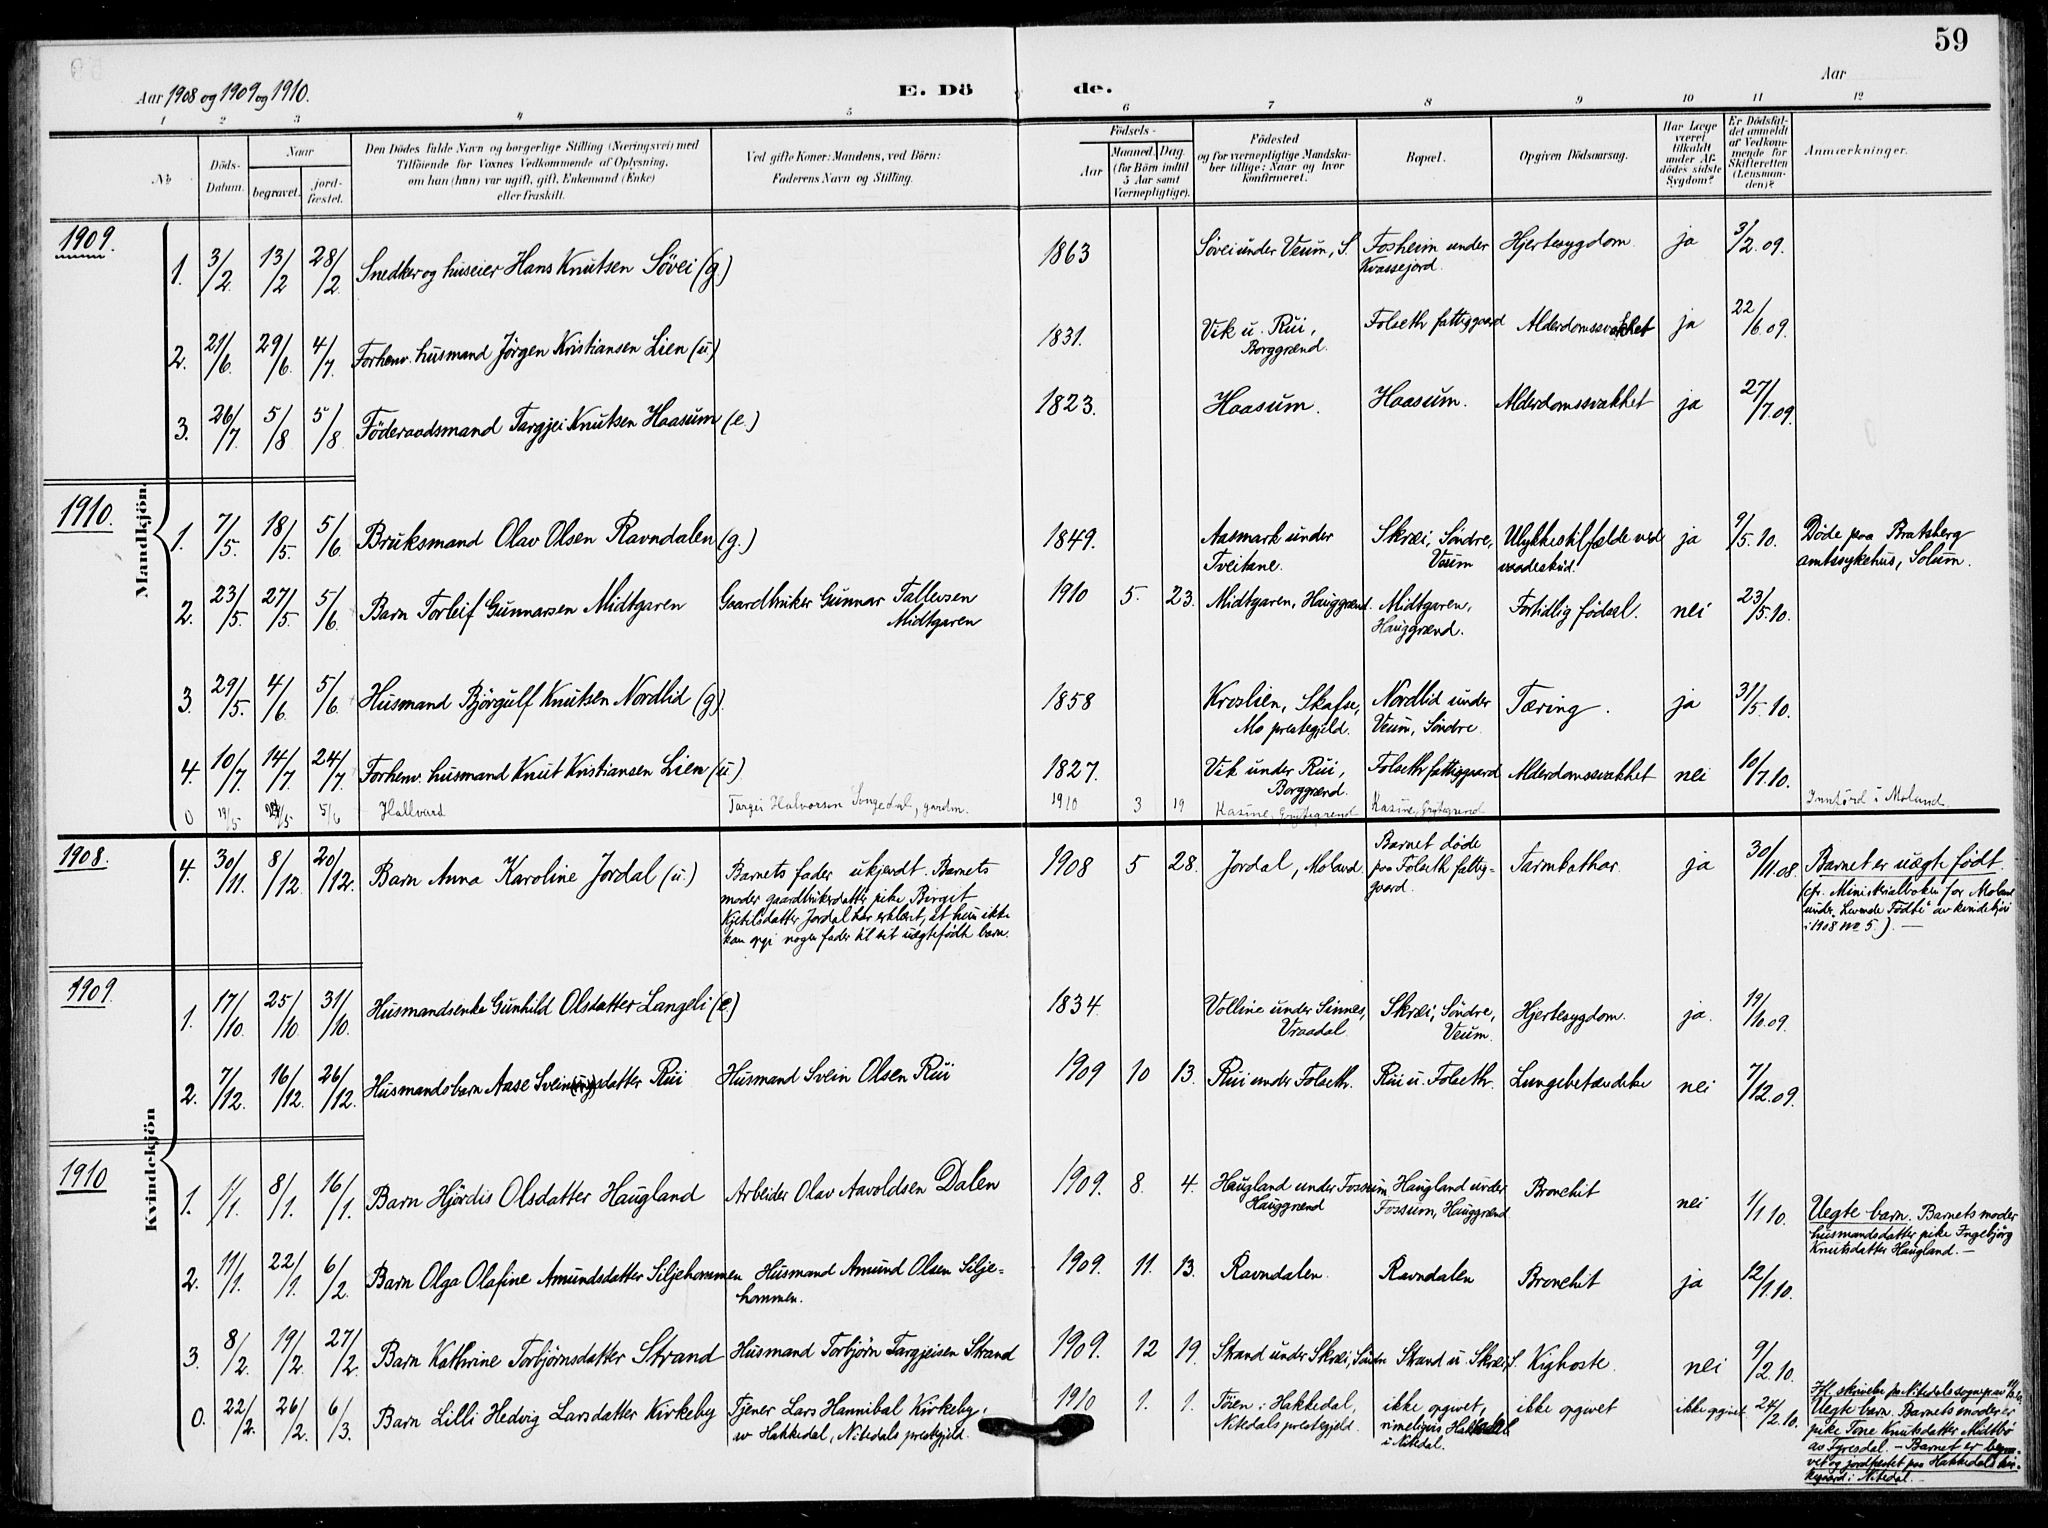 59
Aar 1908 og 1909 og 1910.
E. Dö
de.
Aar
1 2 3 4 5 6 7 8 9 10 11 12
No
Döds-Datum.
Naar
begravet.
jord-fæstet.
Den Dödes fulde Navn og borgerlige Stilling (Næringsvei) med
Tilföiende for Voxnes Vedkommende af Oplysning,
om han (hun) var ugift, gift, Enkemand (Enke)
eller fraskilt.
Ved gifte Koner: Mandens, ved Börn:
Faderens Navn og Stilling.
Födsels-
Aar
Maaned. Dag.
(for Börn indtil
5 Aar samt
Værnepligtige).
Födested
og for værnepligtige Mandska-
ber tillige: Naar og hvor
konfirmeret.
Bopæl.
Opgiven Dödsaarsag.
Har Læge
været
tilkaldt
under Af-
dödes sidste
Sygdom?
Er Dödsfal-
det anmeldt
af Vedkom-
mende for
Skifteretten
(Lensman-
den)?
Anmærkninger.
Mandkjön.
1909.
1. 3/2. 13/2 28/2. Snedker og huseier Hans Knutsen Sövei (g.) 1863 Søvei under Veum, S. Fosheim under Kvassejord. Hjertesygdom. ja 3/2.09.
2. 21/6. 29/6. 4/7. Forhenv. husmand Jörgen Kristiansen Lien (u) 1831. Vik u. Rui, Borggrænd. Folseth fattiggaard Alderdomssvakhet ja 22/6.09.
3. 26/7. 5/8 5/8 Föderaadsmand Targjei Knutsen Haasum (e.) 1823. Haasum. Haasum. Alderdomssvakhet ja 27/7.09.
1910.
1. 7/5. 18/5. 5/6. Bruksmand Olav Olsen Ravndalen (g.) 1849. Aasmark under Tveitane. Skræi, Söndre, Veum Ulykkestilfælde ved vaadeskud. ja 9/5.10. Döde paa Bratsberg amtssykehus, Solum.
2. 23/5. 27/5. 5/6. Barn Torleif Gunnarsen Midtgaren Gaardbruker Gunnar Tallevsen Midtgaren 1910 5. 23. Midtgaren, Hauggrænd. Midtgaren, Hauggrænd. Fortidlig fødsel. nei 23/5.10.
3. 29/5. 4/6 5/6. Husmand Björgulf Knutsen Nordlid (g). 1858 Kroslien, Skafse, Mo prestegjeld. Nordlid under Veum, Söndre Tæring. ja 31/5.10.
4. 10/7. 14/7. 24/7. Forhenv. husmand Knut Kristiansen Lien (u) 1827. Vik under Rui, Borggrænd. Folseth fattiggaard Alderdomssvakhet nei 10/7.10.
0 19/5 5/6 Hallvard Targei Halvorsen Songedal, gardm. 1910 3 19 Kasine, Kasine, Innførd i Moland.
Kvindekjön
1908.
4. 30/11. 8/12. 20/12. Barn Anna Karoline Jordal (u.) Barnets fader ukjendt. Barnets
moder gaardbrukerdatter pike Birgit
Kjetilsdatter Jordal har erklært, at hun ikke
kan opgi nogen fader til sit uægtefödte barn. 1908 5 28. Jordal, Moland Barnet döde paa Folseth fattig-gaard. Tarmkathar. ja 30/11.08 Barnet er uægte födt
(cfr. Ministerialboken for Moland
under "Levende Fødte" av kvindekjøn
i 1908 no 5.). —
1909.
1. 17/10. 25/10 31/10. Husmandsenke Gunhild Olsdatter Langeli (e.) 1834. Volline under Sinnes, Vraadal. Skræi, Söndre, Veum. Hjertesygdom. ja. 19/10.09.
2. 7/12. 16/12. 26/12. Husmandsbarn Aase Svein(ungs)datter Rui Husmand Svein Olsen Rui 1909 10 13. Rui under Folseth. Rui u. Folseth. Lungebetændelse nei 7/12.09.
1910
1. 1/1. 8/1. 16/1. Barn Hjördis Olsdatter Haugland Arbeider Olav Aavoldsen Dalen 1909. 8. 4. Haugland under Fossum Hauggrænd Haugland under Fossum, Hauggrænd Bronchit nei 1/1 10. Uegte barn. Barnets moder
husmandsdatter pike Ingebjörg
Knutsdatter Haugland. —
2. 11/1. 22/1. 6/2. Barn Olga Olafine Amundsdatter Siljehommen Husmand Amund Olsen Silje=
hommen. 1909. 11. 13. Ravndalen. Ravndalen Bronchit ja 12/1.10.
3. 8/2. 19/2. 27/2. Barn Kathrine Torbjørnsdatter Strand Husmand Torbjørn Targjeisen Strand 1909. 12 19. Strand under Skræi, Söndre Strand u. Skræi, S. Kighoste. nei 9/2.10.
0. 22/2. 26/2. 6/3. Barn Lilli Hedvig Larsdatter Kirkeby Tjener Lars Hannibal Kirkeby,
av Hakkedal, Nitedals prestegjeld. 1910 1. 1. Töien i Hakkedal, Nitedals prestegjeld. ikke opgivet, rimeligvis Hakkedal i Nitedal. ikke opgivet ikke opgivet 24/2.10. Ifl. skrivelse fra Nitedals sogneprest
Uegte barn. Barnets moder er
pike Tone Knutsdatter Midtbö
av Fyresdal. — Barnet er begra-
vet og jordfæstet paa Hakkedals kir-
kegaard i Nitedal. —